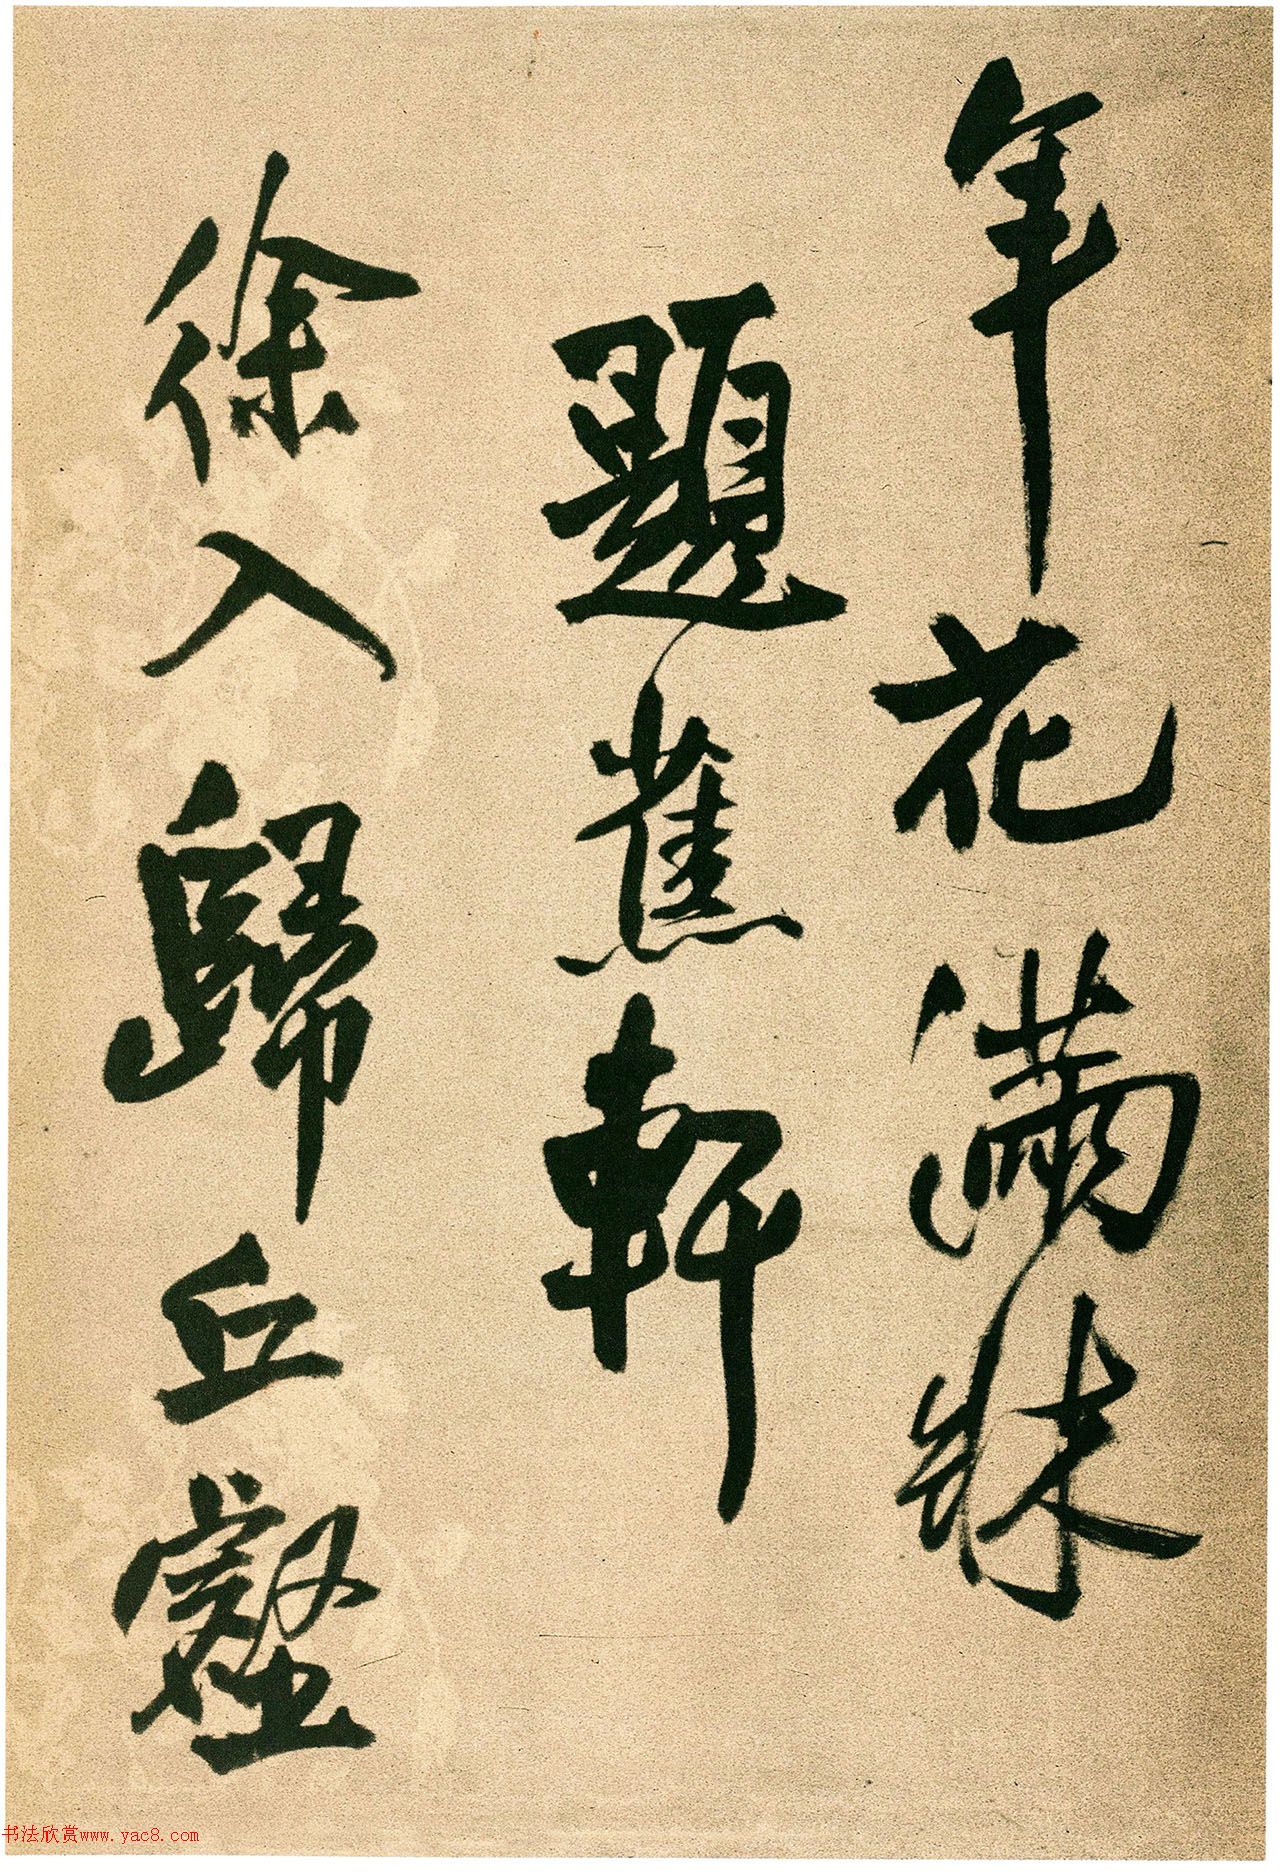 年花滿牀
題蕉軒
徐入歸丘壑
书法欣赏www.yac8.com